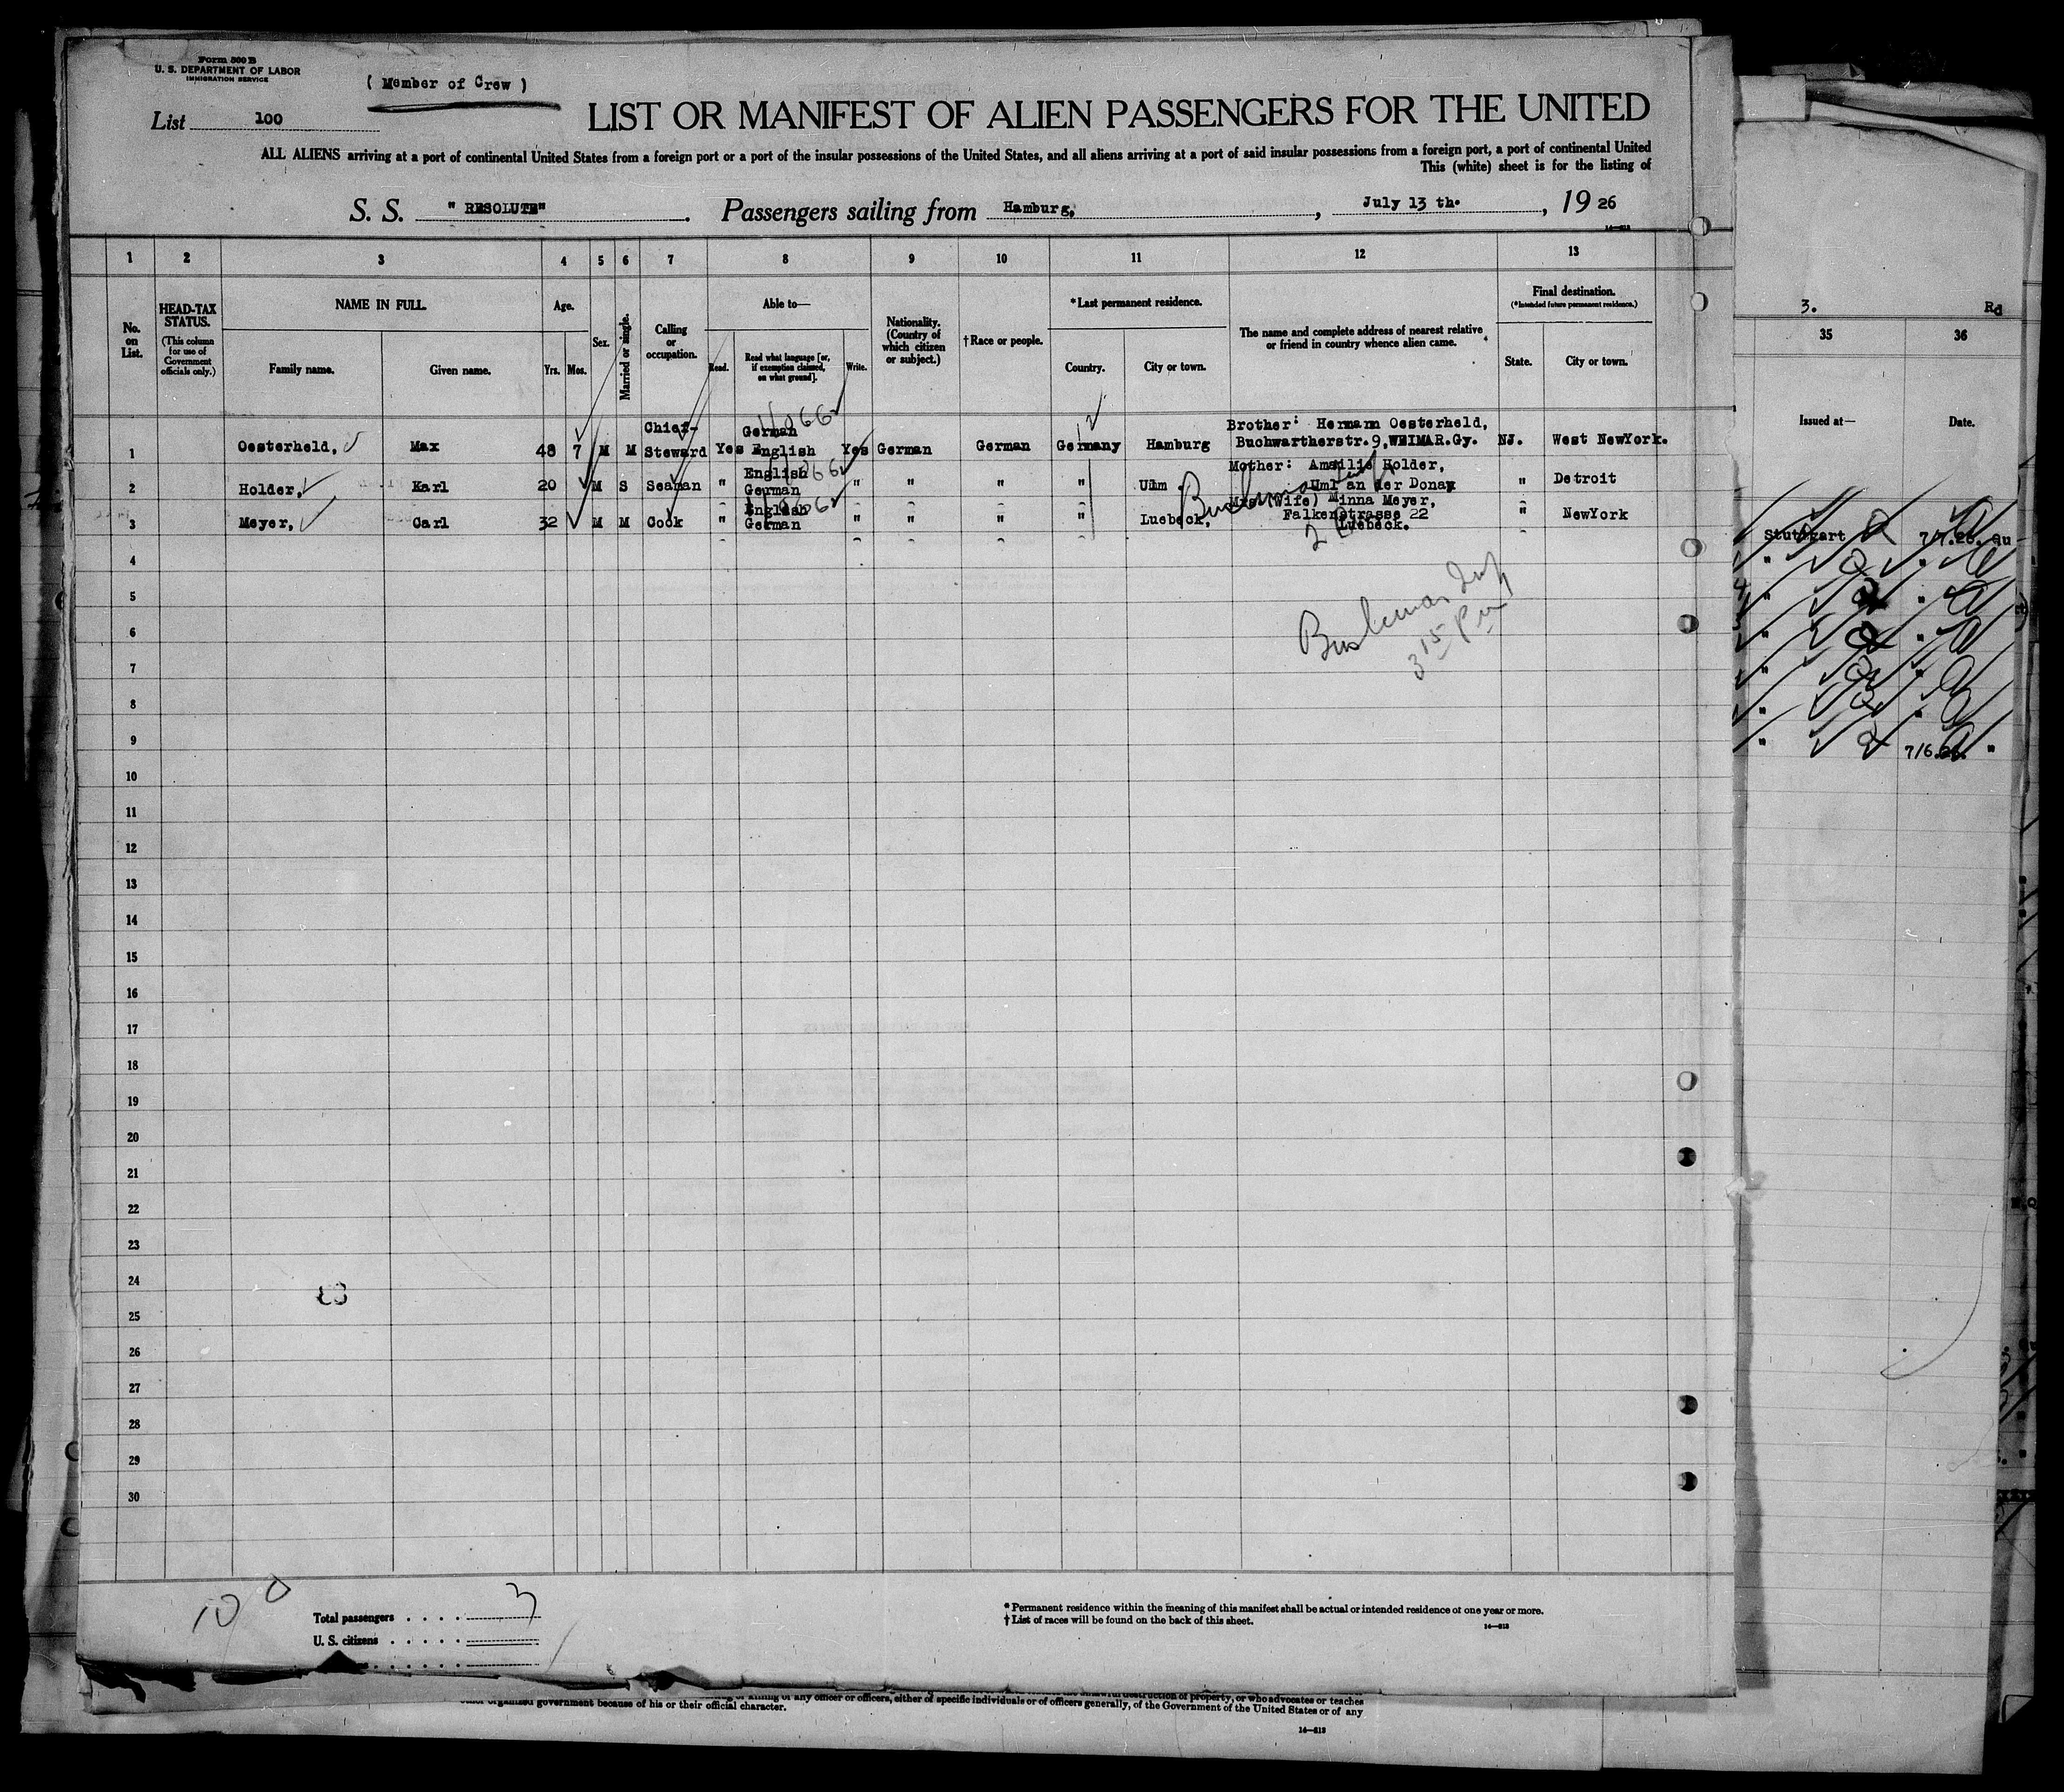 Form 500 B
U. S. DEPARTMENT OF LABOR
IMMIGRATION SERVICE
( Member of Crew )
List 100
LIST OR MANIFEST OF ALIEN PASSENGERS FOR THE UNITED
ALL ALIENS arriving at a port of continental United States from a foreign port or a port of the insular possessions of the United States, and all aliens arriving at a port of said insular possessions from a foreign port, a port of continental United
This (white) sheet is for the listing of
S. S. " RESOLUTE" . Passengers sailing from Hamburg, , July 13 th. , 19 26
1 2 3 4 5 6 7 8 9 10 11 12 13
No. on List.
HEAD-TAX STATUS.
(This column for use of Government officials only.)
NAME IN FULL.
Family name. Given name.
Age.
Yrs. Mos.
Sex.
Married or single.
Calling or occupation.
Able to—
Read. Read what language [or, if exemption claimed, on what ground]. Write.
Nationality. (Country of which citizen or subject.)
†Race or people.
*Last permanent residence.
Country. City or town.
The name and complete address of nearest relative or friend in country whence alien came.
Final destination.
(*Intended future permanent residence.)
State. City or town.
1 Oesterheld, Max 48 7 M M Chief-Steward Yes German English Yes German German Germany Hamburg Brother: Hermann Oesterheld, Buchwartherstr.9,WEIMAR.Gy. NJ. West NewYork.
2 Holder, Karl 20 M S Seaman " English German " " " " Ulm Mother: Holder, Uml an der Donau " Detroit
3 Meyer, Carl 32 M M Cook " English German " " " " Luebeck, Mrs(Wife) Minna Meyer, Falkenstrasse 22 Luebeck. " NewYork
4
5
6
3 15 Pm
7
8
9
10
11
12
13
14
15
16
17
18
19
20
21
22
23
24
25
26
27
28
29
30
100
Total passengers . . . . 3
U. S. citizens . . . . .
* Permanent residence within the meaning of this manifest shall be actual or intended residence of one year or more.
† List of races will be found on the back of this sheet.
14—813
of any officer or officers, either of specific individuals or of officers generally, of the Government of the United States or of any
organized government because of his or their official character.
14—813
3. Rd
35 36
Issued at— Date.
Stuttgart 7/7.26. au
7/6.26. "